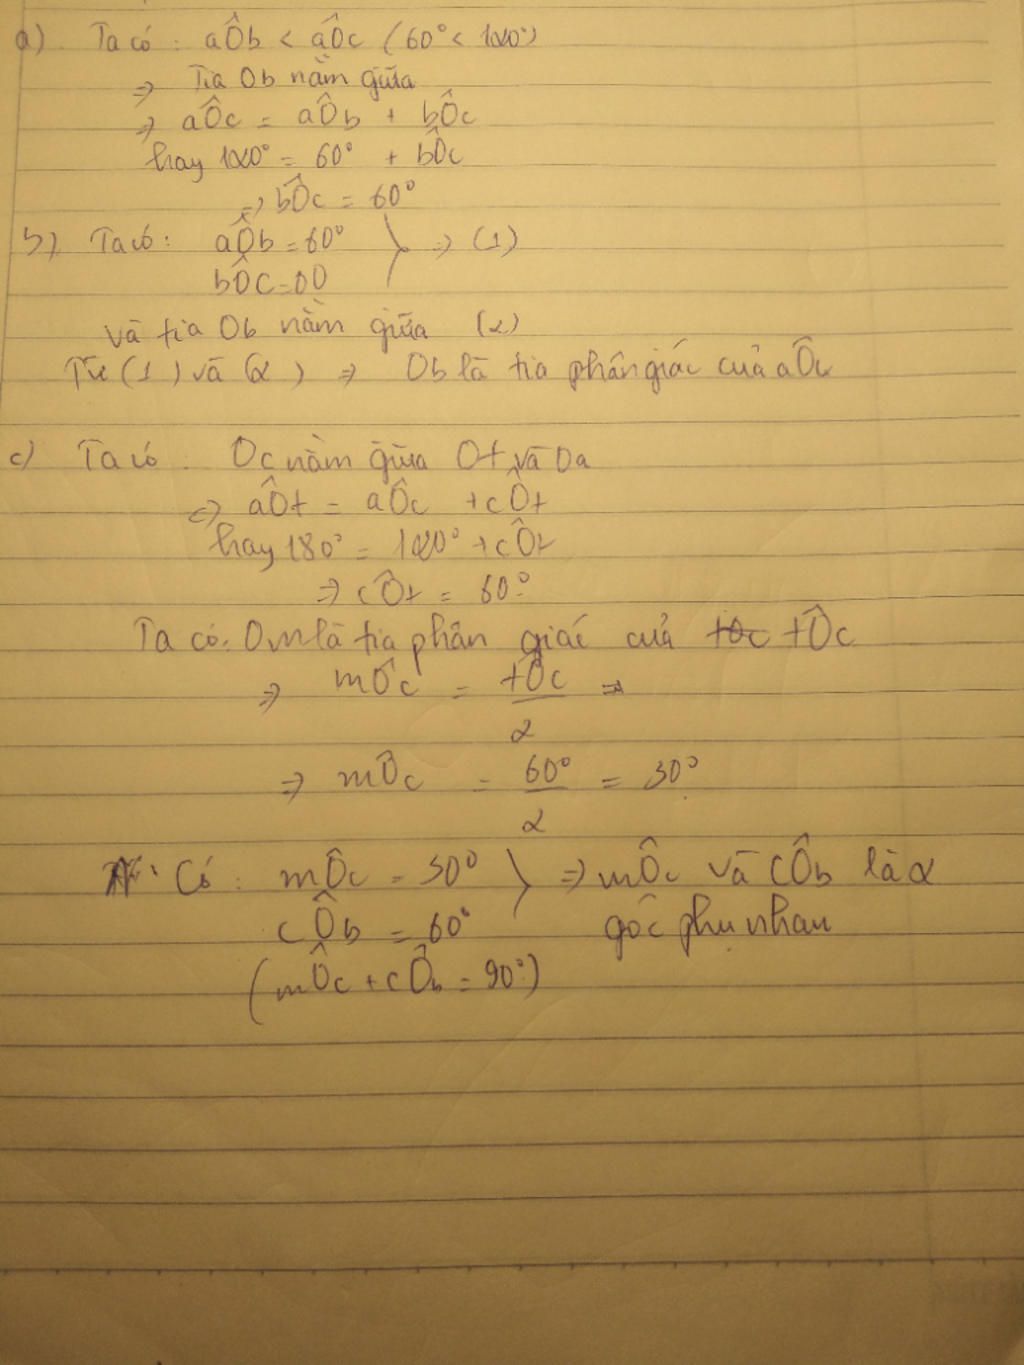 a) Ta có : aÔb < aÔc (60° < 120°)
=> Tia Ob nằm giữa
=> aÔc = aÔb + bÔc
hay 120° = 60° + bÔc
=> bÔc = 60°
b) Ta có : aÔb = 60° } => (1)
bÔc = 60
và tia Ob nằm giữa (2)
Từ (1) và (2) => Ob là tia phân giác của aÔc
c) Ta có : Oc nằm giữa Ot và Oa
=> aÔt = aÔc + cÔt
hay 180° = 120° + cÔt
=> cÔt = 60°
Ta có: Om là tia phân giác của tÔc
=> mÔc = tÔc / 2 =>
=> mÔc = 60° / 2 = 30°
Có : mÔc = 30° } => mÔc và cÔb là 2
cÔb = 60° góc phụ nhau
(mÔc + cÔb = 90°)